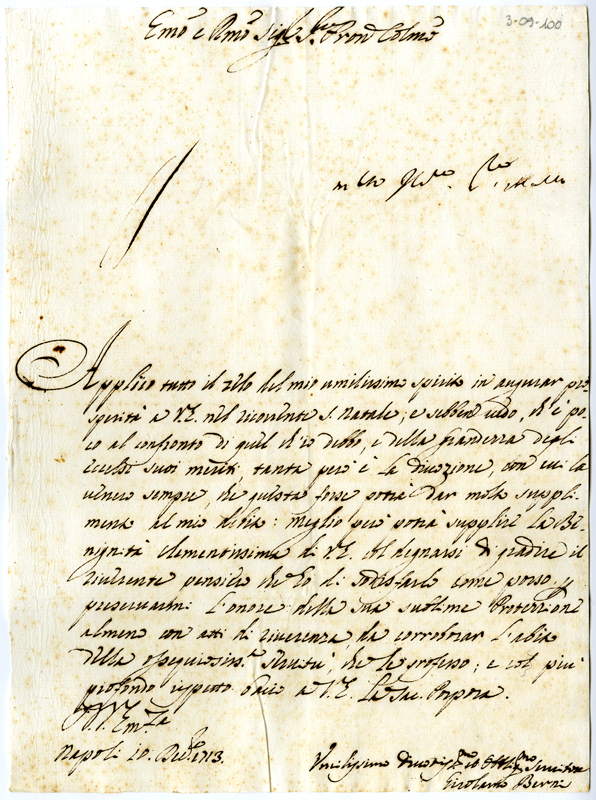 3-09-100
Emo e Rmo Sigr Sre Pron Colmo
Applico tutto il zelo del mio umilissimo spirito in augurar pro-
sperità a V.E. nel ricorrente S. Natale; e sebben vedo, ch'è po-
co al confronto di quel ch'io debbo, e della grandezza degli
eccelsi suoi meriti, tanta però è la divozione, con cui la
venero sempre, che questa forse potrà dar molto suppli-
mento al mio
meglio però potrà supplire la Be-
nignità clementissima di V.E. al degnarsi di gradire il
riverente pensiero che ho di sodisfarlo come posso, p
preservarmi l'onore della sua sublime Protezzione
almeno con atti di riverenza, da corroborar
della ossequiosissa servitù, che le professo; e col più
profondo rispetto bacio a V.E. la Sac. Porpora.
Di V. Emza
Napoli 10. Dicre 1713.
Umilissimo Divotissmo ed Obblmo Servitore
Girolamo Berni